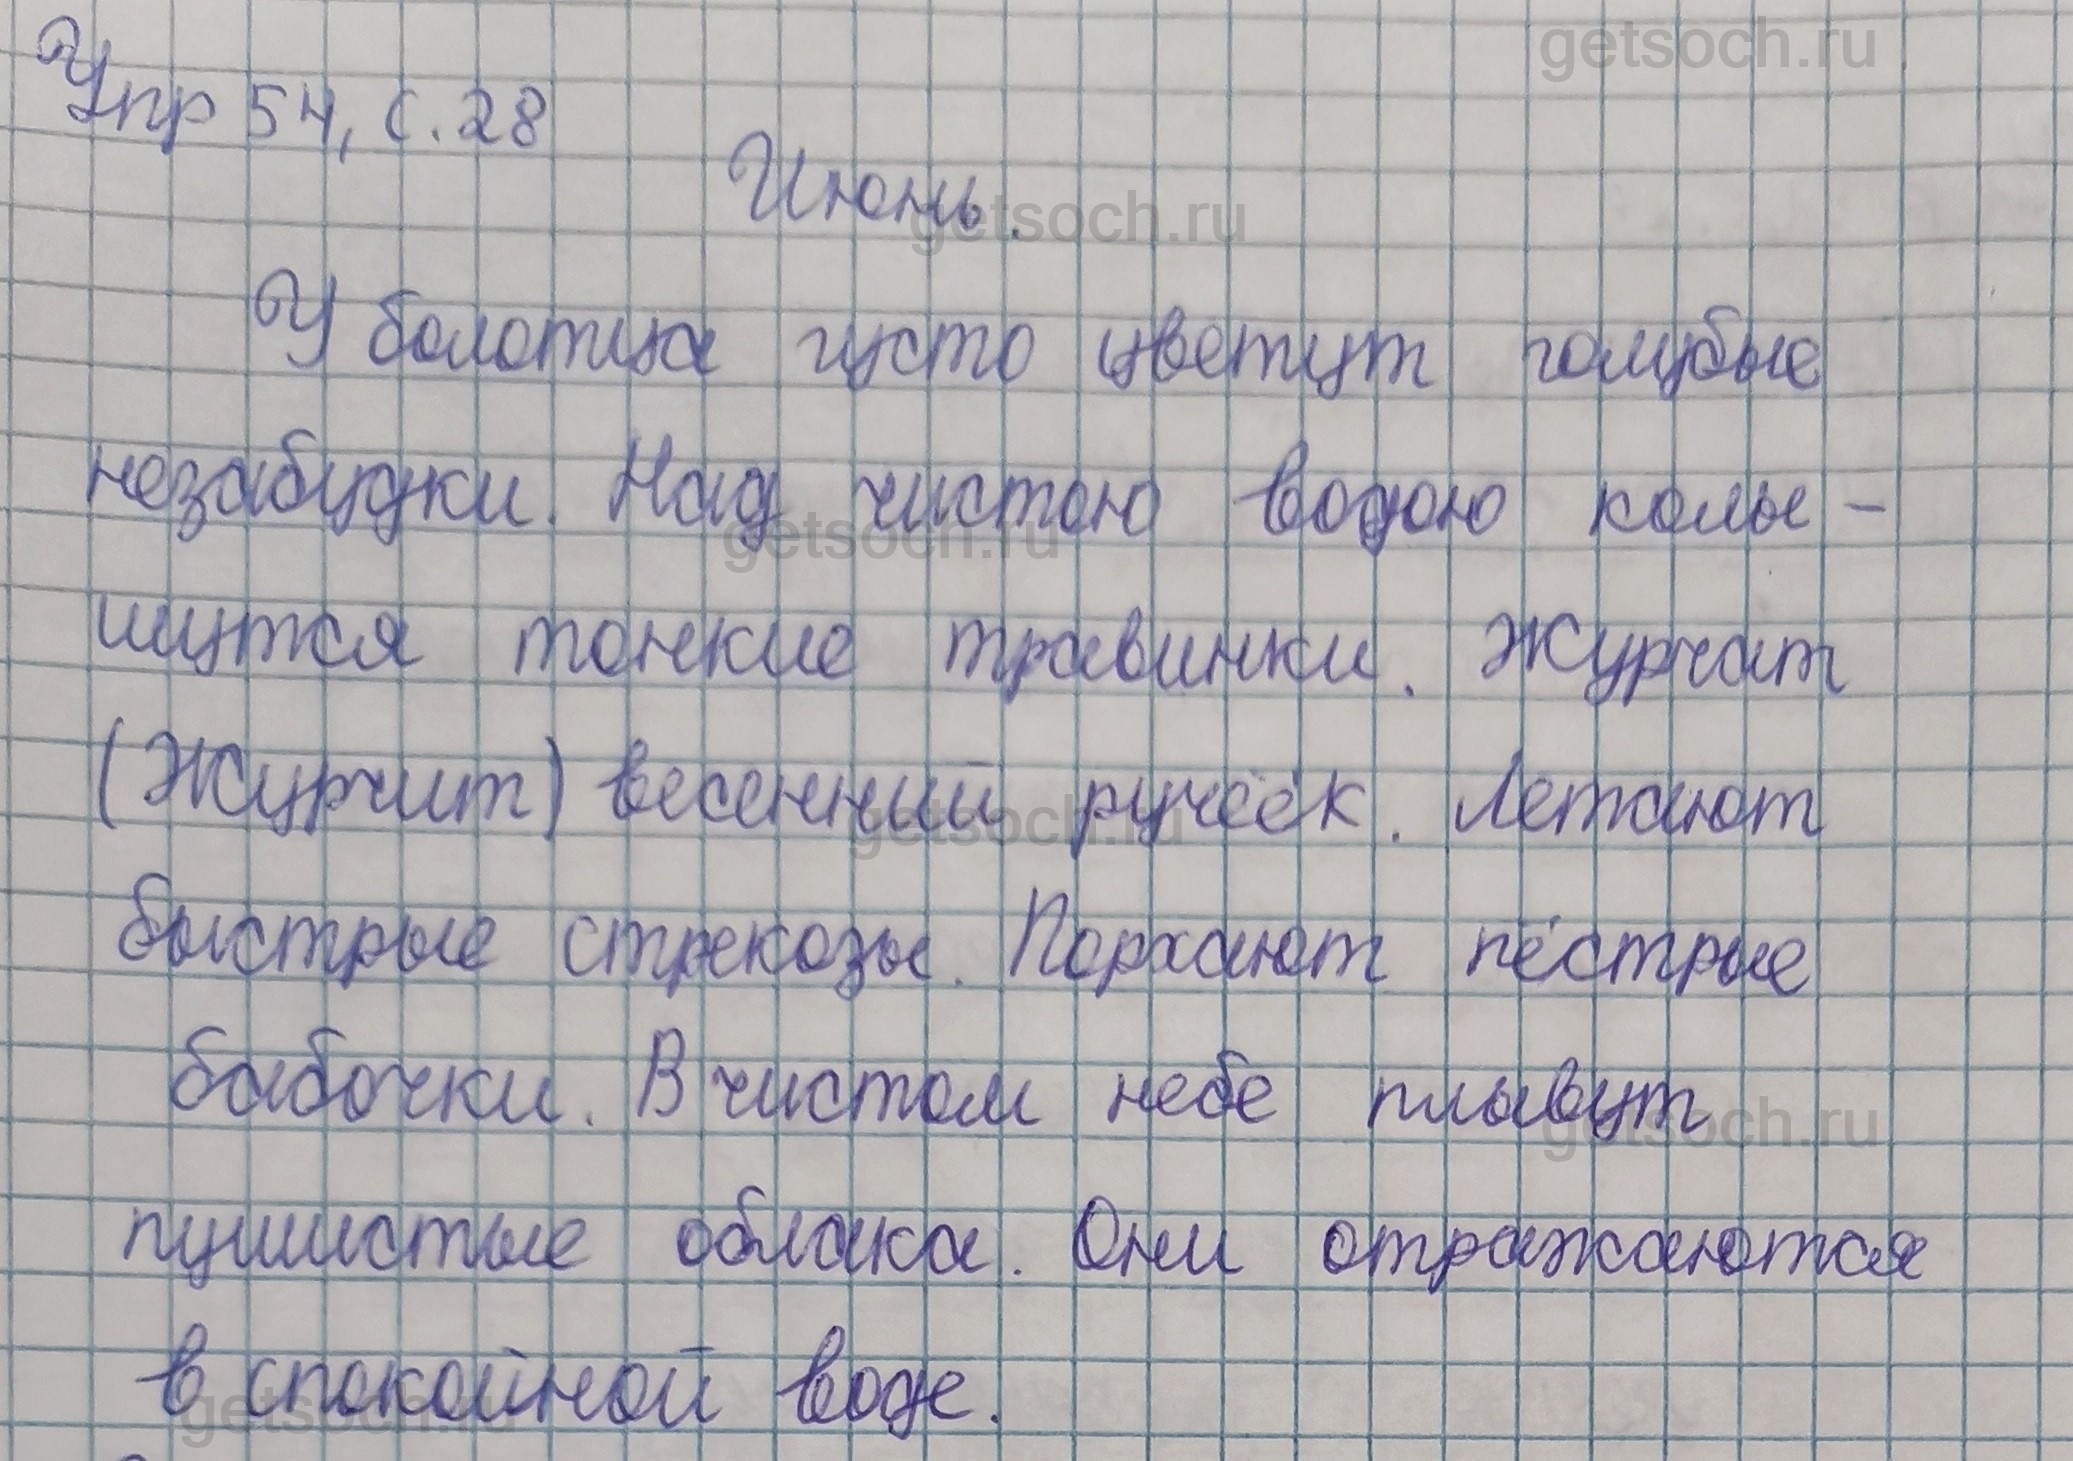 Упр 54, с. 28
Июнь.
У болотца густо цветут голубые
незабудки. Над чистою водою колы-
шутся тонкие травинки. Журчат
(Журчит) весенний ручеёк. Летают
быстрые стрекозы. Порхают пёстрые
бабочки. В чистом небе плывут
пушистые облака. Они отражаются
в спокойной воде.
getsoch.ru
getsoch.ru
getsoch.ru
getsoch.ru
getsoch.ru
getsoch.ru